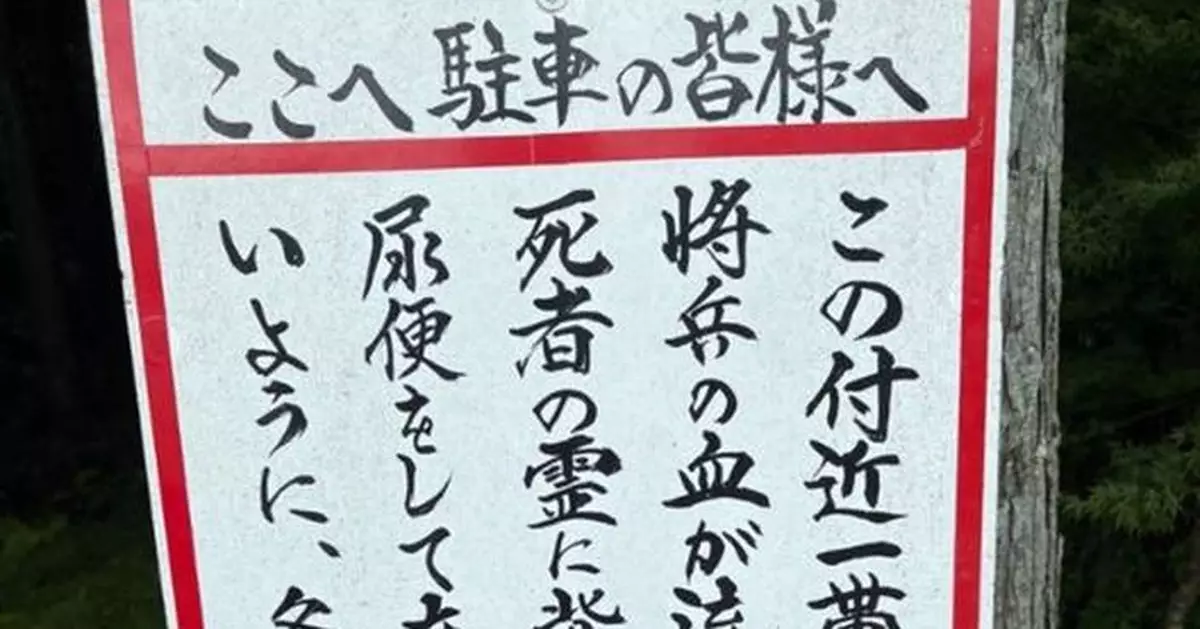 ここへ駐車の皆様へ
この付近一帯
将兵の血が流
死者の霊に
尿便をして
いように、